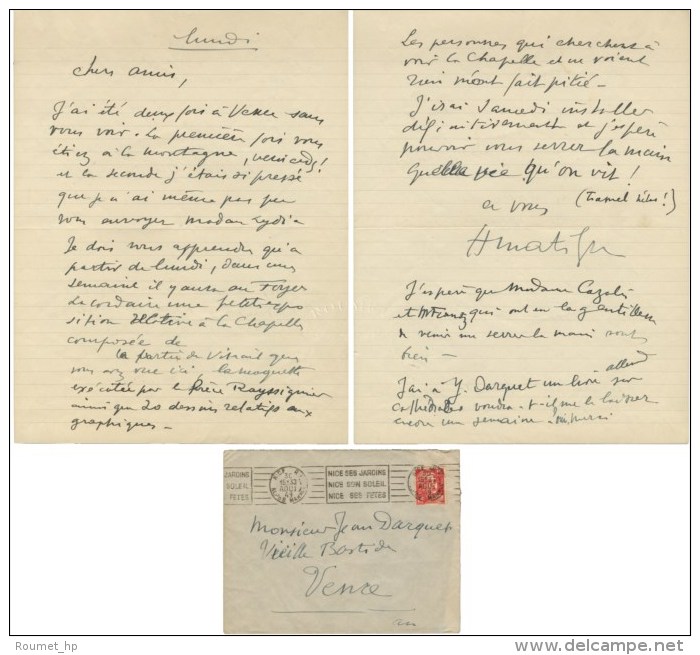 lundi
Chers amis,
J'ai été deux fois à Vence sans
vous voir. La première fois vous
étiez à la montagne, veinards!
et la seconde j'étais si pressé
que je n'ai même pas pu
vous envoyer Madame Lydia
Je dois vous apprendre qu'à
partir de lundi, dans une
semaine il y aura au Foyer
Lacordaire une petite expo
sition relative à la Chapelle
composée de
la partie de vitrail que
vous avez vue ici, la maquette
exécutée par le frère Rayssiguier
ainsi que 20 dessins relatifs aux
graphiques _
Les personnes qui cherchent à
voir la Chapelle et ne voient
rien m'ont fait pitié _
J'irai Samedi installer
définitivement et j'espère
pouvoir vous serrer la main
Quelle vie qu'on vit!
à vous
HMatisse
J'espère que Madame Cazalis
et qui ont eu la gentillesse
de venir me serrer la main vont
bien _
J'ai à Y. Darquet un livre allemand sur
cathédrales voudra-t-il me le laisser
encore une semaine. merci
JARDINS
SOLEIL
FETES
NICE SES JARDINS
NICE SON SOLEIL
NICE SES FETES
Monsieur Jean Darquet
Vieille Bastide
Vence
Roumet_hp
www.delcampe.net